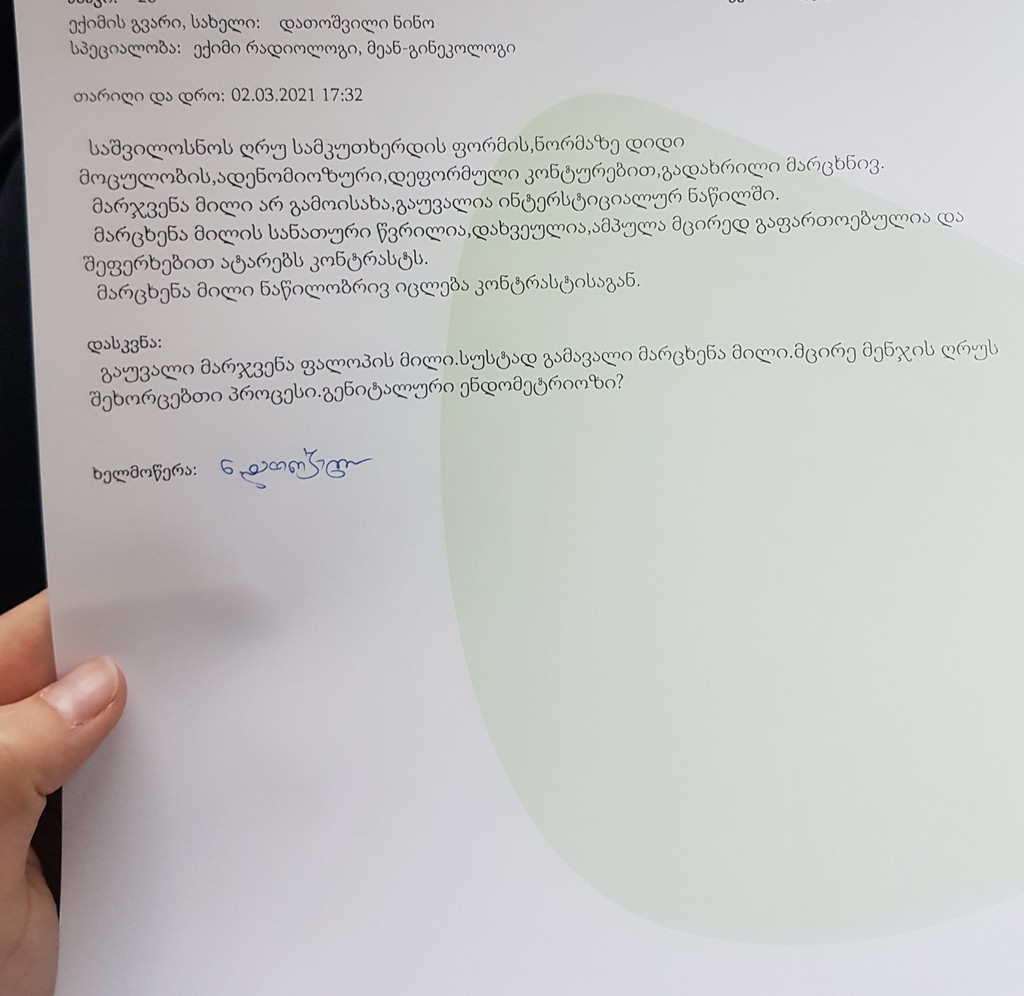 ექიმის გვარი, სახელი: დათოშვილი ნინო
სპეციალობა: ექიმი რადიოლოგი, მეან-გინეკოლოგი
თარიღი და დრო: 02.03.2021 17:32
საშვილოსნოს ღრუ სამკუთხერდის ფორმის,ნორმაზე დიდი
მოცულობის,ადენომიოზური,დეფორმული კონტურებით,გადახრილი მარცხნივ.
მარჯვენა მილი არ გამოისახა,გაუვალია ინტერსტიციალურ ნაწილში.
მარცხენა მილის სანათური წვრილია,დახვეულია,ამპულა მცირედ გაფართოებულია და
შეფერხებით ატარებს კონტრასტს.
მარცხენა მილი ნაწილობრივ იცლება კონტრასტისაგან.
დასკვნა:
გაუვალი მარჯვენა ფალოპის მილი.სუსტად გამავალი მარცხენა მილი.მცირე მენჯის ღრუს
შეხორცებთი პროცესი.გენიტალური ენდომეტრიოზი?
ხელმოწერა: